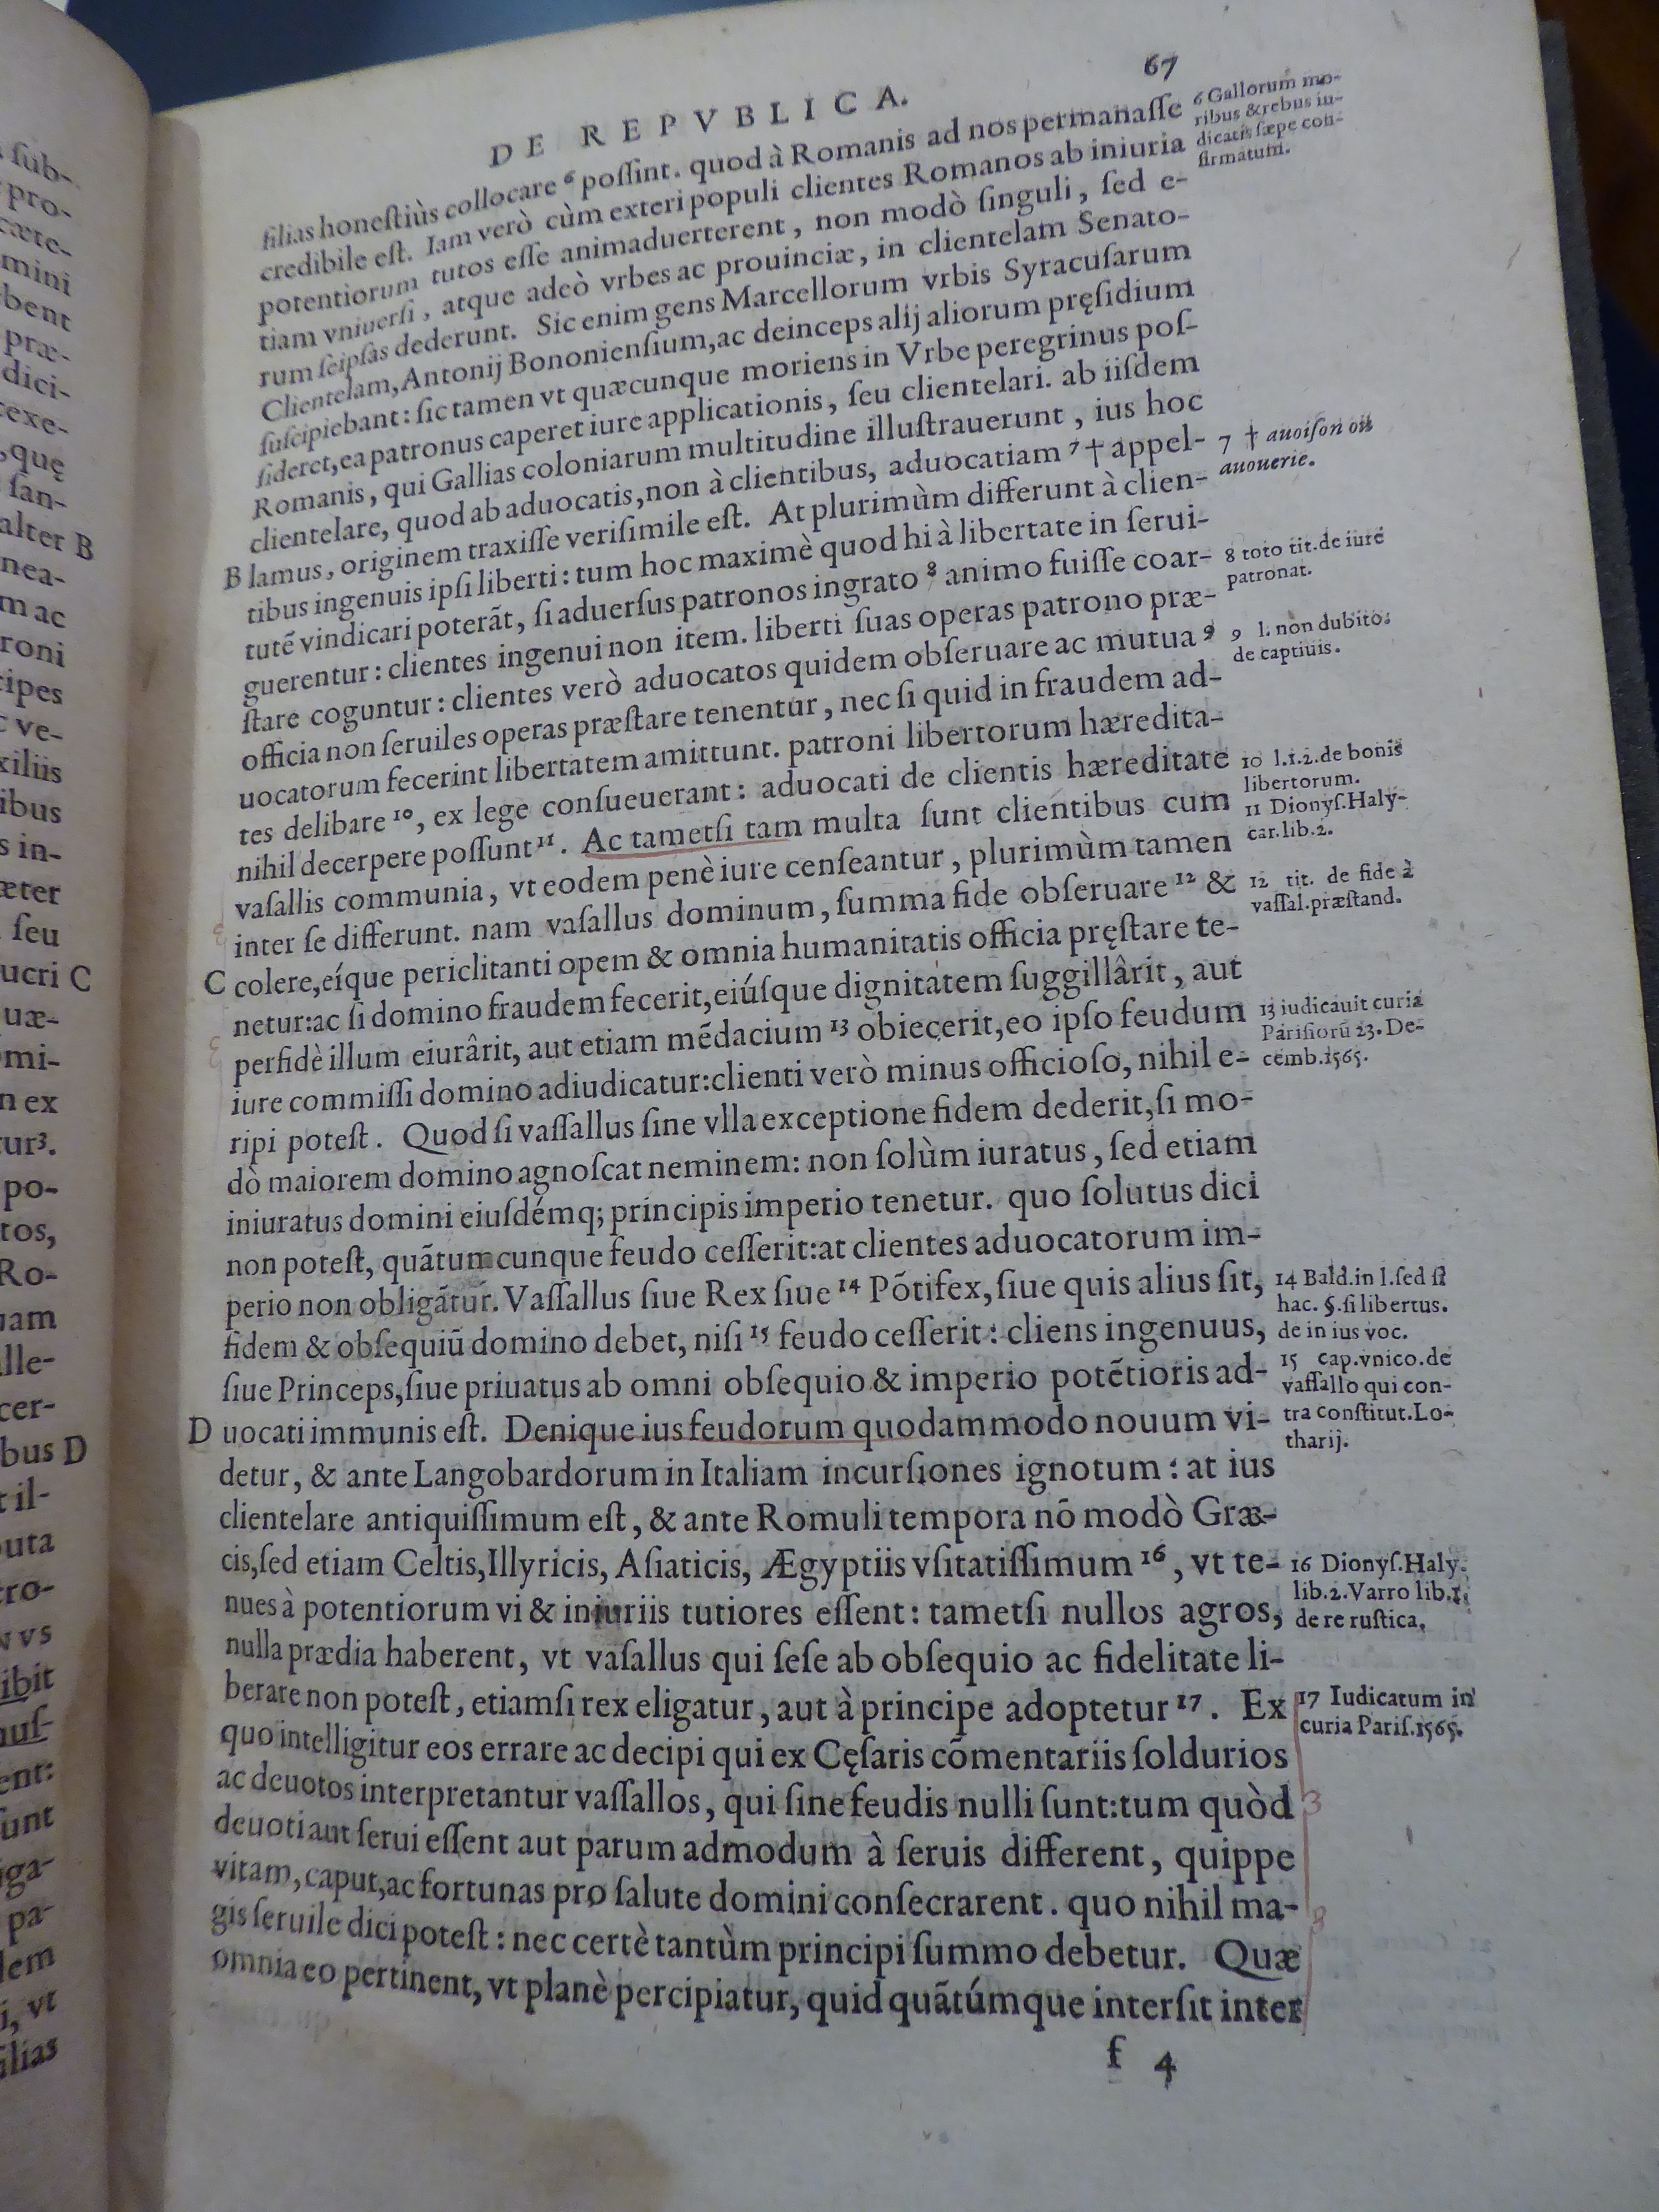 DE REPVBLICA.
67
filias honeſtiùs collocare 6 poſſint. quod à Romanis ad nos permanaſſe
credibile eſt. Iam verò cùm exteri populi clientes Romanos ab iniuria
potentiorum tutos eſſe animaduerterent, non modò ſinguli, ſed e-
tiam vniuerſi, atque adeò vrbes ac prouinciæ, in clientelam Senato-
rum ſeipſas dederunt. Sic enim gens Marcellorum vrbis Syracuſarum
Clientelam, Antonij Bononienſium, ac deinceps alij aliorum pręſidium
ſuſcipiebant: ſic tamen vt quæcunque moriens in Vrbe peregrinus poſ-
ſideret, ea patronus caperet iure applicationis, ſeu clientelari. ab iiſdem
Romanis, qui Gallias coloniarum multitudine illuſtrauerunt, ius hoc
clientelare, quod ab aduocatis, non à clientibus, aduocatiam 7 † appel-
B lamus, originem traxiſſe veriſimile eſt. At plurimùm differunt à clien-
tibus ingenuis ipſi liberti: tum hoc maximè quod hi à libertate in ſerui-
tutẽ vindicari poterãt, ſi aduerſus patronos ingrato 8 animo fuiſſe coar-
guerentur: clientes ingenui non item. liberti ſuas operas patrono præ-
ſtare coguntur: clientes verò aduocatos quidem obſeruare ac mutua 9
officia non ſeruiles operas præſtare tenentur, nec ſi quid in fraudem ad-
uocatorum fecerint libertatem amittunt. patroni libertorum hæredita-
tes delibare 10, ex lege conſueuerant: aduocati de clientis hæreditate
nihil decerpere poſſunt 11. Ac tametſi tam multa ſunt clientibus cum
vaſallis communia, vt eodem penè iure cenſeantur, plurimùm tamen
inter ſe differunt. nam vaſallus dominum, ſumma fide obſeruare 12 &
C colere, eíque periclitanti opem & omnia humanitatis officia pręſtare te-
netur: ac ſi domino fraudem fecerit, eiúſque dignitatem ſuggillârit, aut
perfidè illum eiurârit, aut etiam mẽdacium 13 obiecerit, eo ipſo feudum
iure commiſſi domino adiudicatur: clienti verò minus officioſo, nihil e-
ripi poteſt. Quod ſi vaſſallus ſine vlla exceptione fidem dederit, ſi mo-
dò maiorem domino agnoſcat neminem: non ſolùm iuratus, ſed etiam
iniuratus domini eiuſdémq; principis imperio tenetur. quo ſolutus dici
non poteſt, quãtumcunque feudo ceſſerit: at clientes aduocatorum im-
perio non obligãtur. Vaſſallus ſiue Rex ſiue 14 Põtifex, ſiue quis alius ſit,
fidem & obſequiũ domino debet, niſi 15 feudo ceſſerit: cliens ingenuus,
ſiue Princeps, ſiue priuatus ab omni obſequio & imperio potẽtioris ad-
D uocati immunis eſt. Denique ius feudorum quodammodo nouum vi-
detur, & ante Langobardorum in Italiam incurſiones ignotum: at ius
clientelare antiquiſſimum eſt, & ante Romuli tempora nõ modò Græ-
cis, ſed etiam Celtis, Illyricis, Aſiaticis, Ægyptiis vſitatiſſimum 16, vt te-
nues à potentiorum vi & iniuriis tutiores eſſent: tametſi nullos agros,
nulla prædia haberent, vt vaſallus qui ſeſe ab obſequio ac fidelitate li-
berare non poteſt, etiamſi rex eligatur, aut à principe adoptetur 17. Ex
quo intelligitur eos errare ac decipi qui ex Cęſaris cõmentariis ſoldurios
ac deuotos interpretantur vaſſallos, qui ſine feudis nulli ſunt: tum quòd
deuoti aut ſerui eſſent aut parum admodum à ſeruis different, quippe
vitam, caput, ac fortunas pro ſalute domini conſecrarent. quo nihil ma-
gis ſeruile dici poteſt: nec certè tantùm principi ſummo debetur. Quæ
omnia eo pertinent, vt planè percipiatur, quid quãtúmque interſit inter
f 4
6 Gallorum mo-
ribus & rebus iu-
dicatis ſæpe con-
firmatum.
7 † auoiſon ou
auouerie.
8 toto tit. de iure
patronat.
9 l. non dubito.
de captiuis.
10 l.1.2. de bonis
libertorum.
11 Dionyſ. Haly-
car. lib.2.
12 tit. de fide à
vaſſal. præſtand.
13 iudicauit curia
Pariſiorũ 23. De-
cemb. 1565.
14 Bald. in l. ſed ſi
hac. §. ſi libertus.
de in ius voc.
15 cap. vnico. de
vaſſallo qui con-
tra conſtitut. Lo-
tharij.
16 Dionyſ. Haly.
lib.2. Varro lib.1.
de re ruſtica.
17 Iudicatum in
curia Pariſ. 1565.
ſub-
pro-
cæte-
mini
bent
præ-
dici-
exe-
, quę
ſan-
alter B
nea-
m ac
roni
cipes
ve-
xiliis
ibus
s in-
æter
ſeu
ucri C
uæ-
mi-
n ex
tur³.
po-
tos,
Ro-
uam
lle-
cer-
bus D
t il-
uta
ro-
vs
ibit
uſ-
ent:
ſunt
iga-
pa-
dem
i, vt
filias